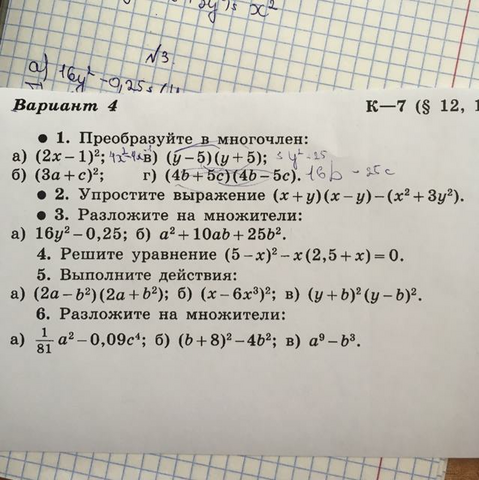 x²
№3.
а) 16y² – 0,25
Вариант 4 К—7 (§ 12, 1
• 1. Преобразуйте в многочлен:
а) (2x – 1)²; 4x² в) (y – 5)(y + 5); y² – 25
б) (3a + c)²; г) (4b + 5c)(4b – 5c). 16b – 25c
• 2. Упростите выражение (x + y)(x – y) – (x² + 3y²).
• 3. Разложите на множители:
а) 16y² – 0,25; б) a² + 10ab + 25b².
4. Решите уравнение (5 – x)² – x(2,5 + x) = 0.
5. Выполните действия:
а) (2a – b²)(2a + b²); б) (x – 6x³)²; в) (y + b)²(y – b)².
6. Разложите на множители:
а) 1/81 a² – 0,09c⁴; б) (b + 8)² – 4b²; в) a⁹ – b³.